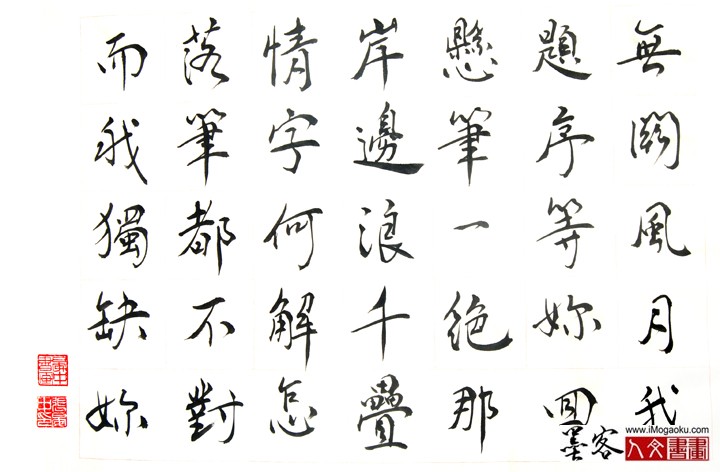 無關風月我
題序等妳回
懸筆一絕那
岸邊浪千疊
情字何解怎
落筆都不對
而我獨缺妳
墨客
www.iMogaoku.com
人文書畫